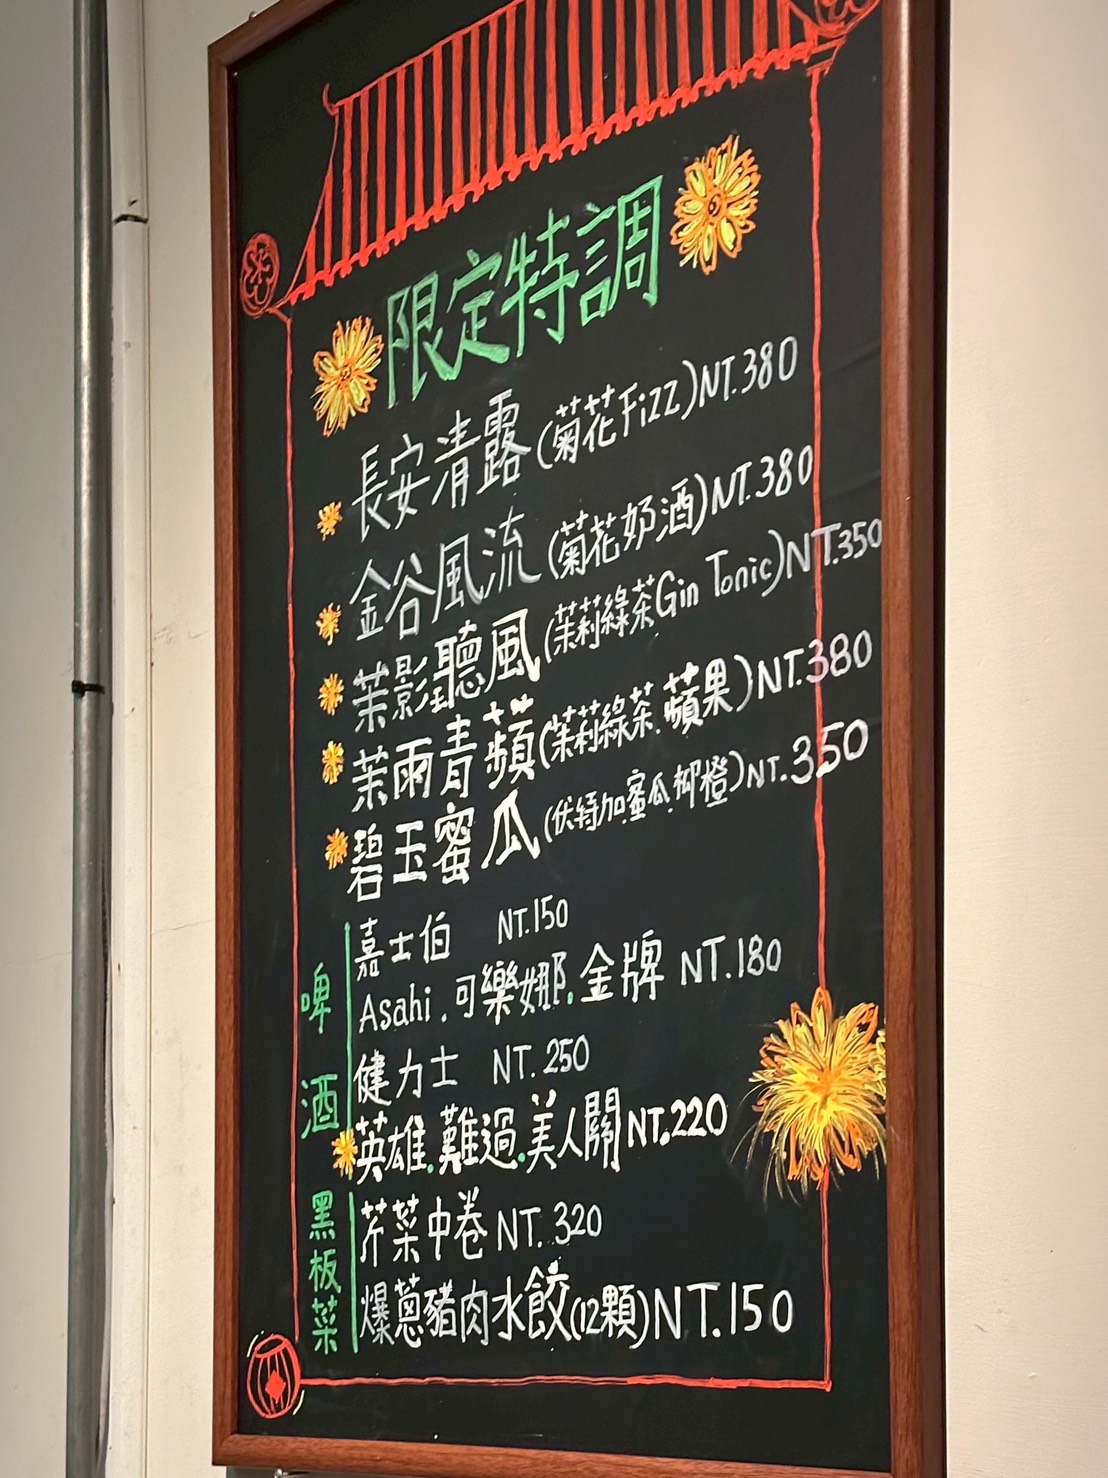 限定特調
長安清露(菊花Fizz)NT.380
金谷風流(菊花奶酒)NT.380
茉影聽風(茉莉綠茶Gin Tonic)NT.350
茉雨青蘋(茉莉綠茶.蘋果)NT.380
碧玉蜜瓜(伏特加.蜜瓜.柳橙)NT.350
啤酒
嘉士伯 NT.150
Asahi.可樂娜.金牌 NT.180
健力士 NT.250
英雄.難過.美人關NT.220
黑板菜
芹菜中卷NT.320
爆蔥豬肉水餃(12顆)NT.150